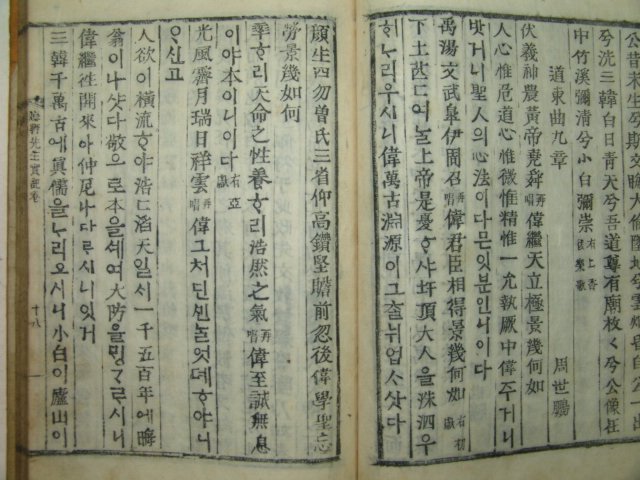 公昔未生兮斯文晦
兮洗三韓白日靑天兮吾道尊有廟枚枚兮公像在
中竹溪彌淸兮小白彌崇右上香後樂歌
道東曲九章
周世鵬
伏羲神農黃帝堯舜再唱偉繼天立極景幾何如
人心惟危道心惟微惟精惟一允執厥中偉주거니
밧거니聖人의心法이다믄잇분인니이다
禹湯文武皐伊周召再唱偉君臣相得景幾何如右初獻
下土甚ᄃᆡ여ᄂᆞᆯ上帝是憂ᄒᆞ샤圩頂大人을洙泗우
희ᄂᆞ리우시니偉萬古淵源이그츨뉘업ᄉᆞ샷다
顔生四勿曾氏三省仰高鑽堅瞻前忽後偉學聖忘
勞景幾如何
率ᄒᆞ리天命之性養ᄒᆞ리浩然之氣再唱偉至誠無息
이야本이니이다右亞獻
光風霽月瑞日祥雲再唱偉그처딘긴놀엇뎨ᄒᆞ야니
ᄋᆞ신고
人欲이橫流ᄒᆞ야浩浩滔天일ᄉᆡ一千五百年에晦
翁이나샷다敬으로本을셰여大防을ᄆᆡᇰᄀᆞᄅᆞ시니
偉繼往開來아仲尼나다ᄅᆞ시니잇거
三韓千萬古애眞儒을ᄂᆞ리오시니小白이廬山이
先生實記卷
十八